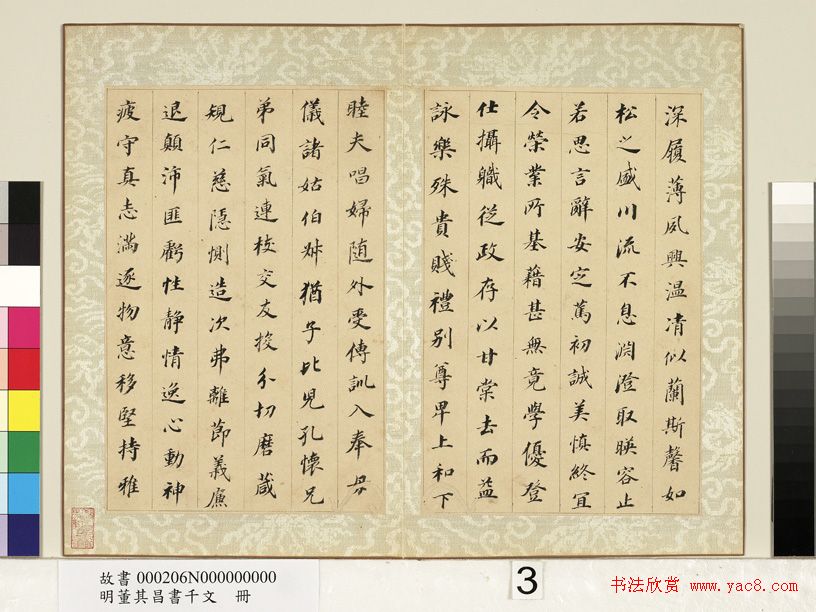 深履薄夙興温凊似蘭斯馨如
松之盛川流不息淵澄取暎容止
若思言辭安定篤初誠美慎終宜
令榮業所基藉甚無竟學優登
仕攝職從政存以甘棠去而益
詠樂殊貴賤禮别尊卑上和下
睦夫唱婦随外受傅訓入奉母
儀諸姑伯叔猶子比兒孔懷兄
弟同氣連枝交友投分切磨葴
規仁慈隱惻造次弗離節義廉
退顛沛匪虧性靜情逸心動神
疲守真志滿逐物意移堅持雅
故書 000206N000000000
明董其昌書千文 冊
3
书法欣赏 www.yac8.com